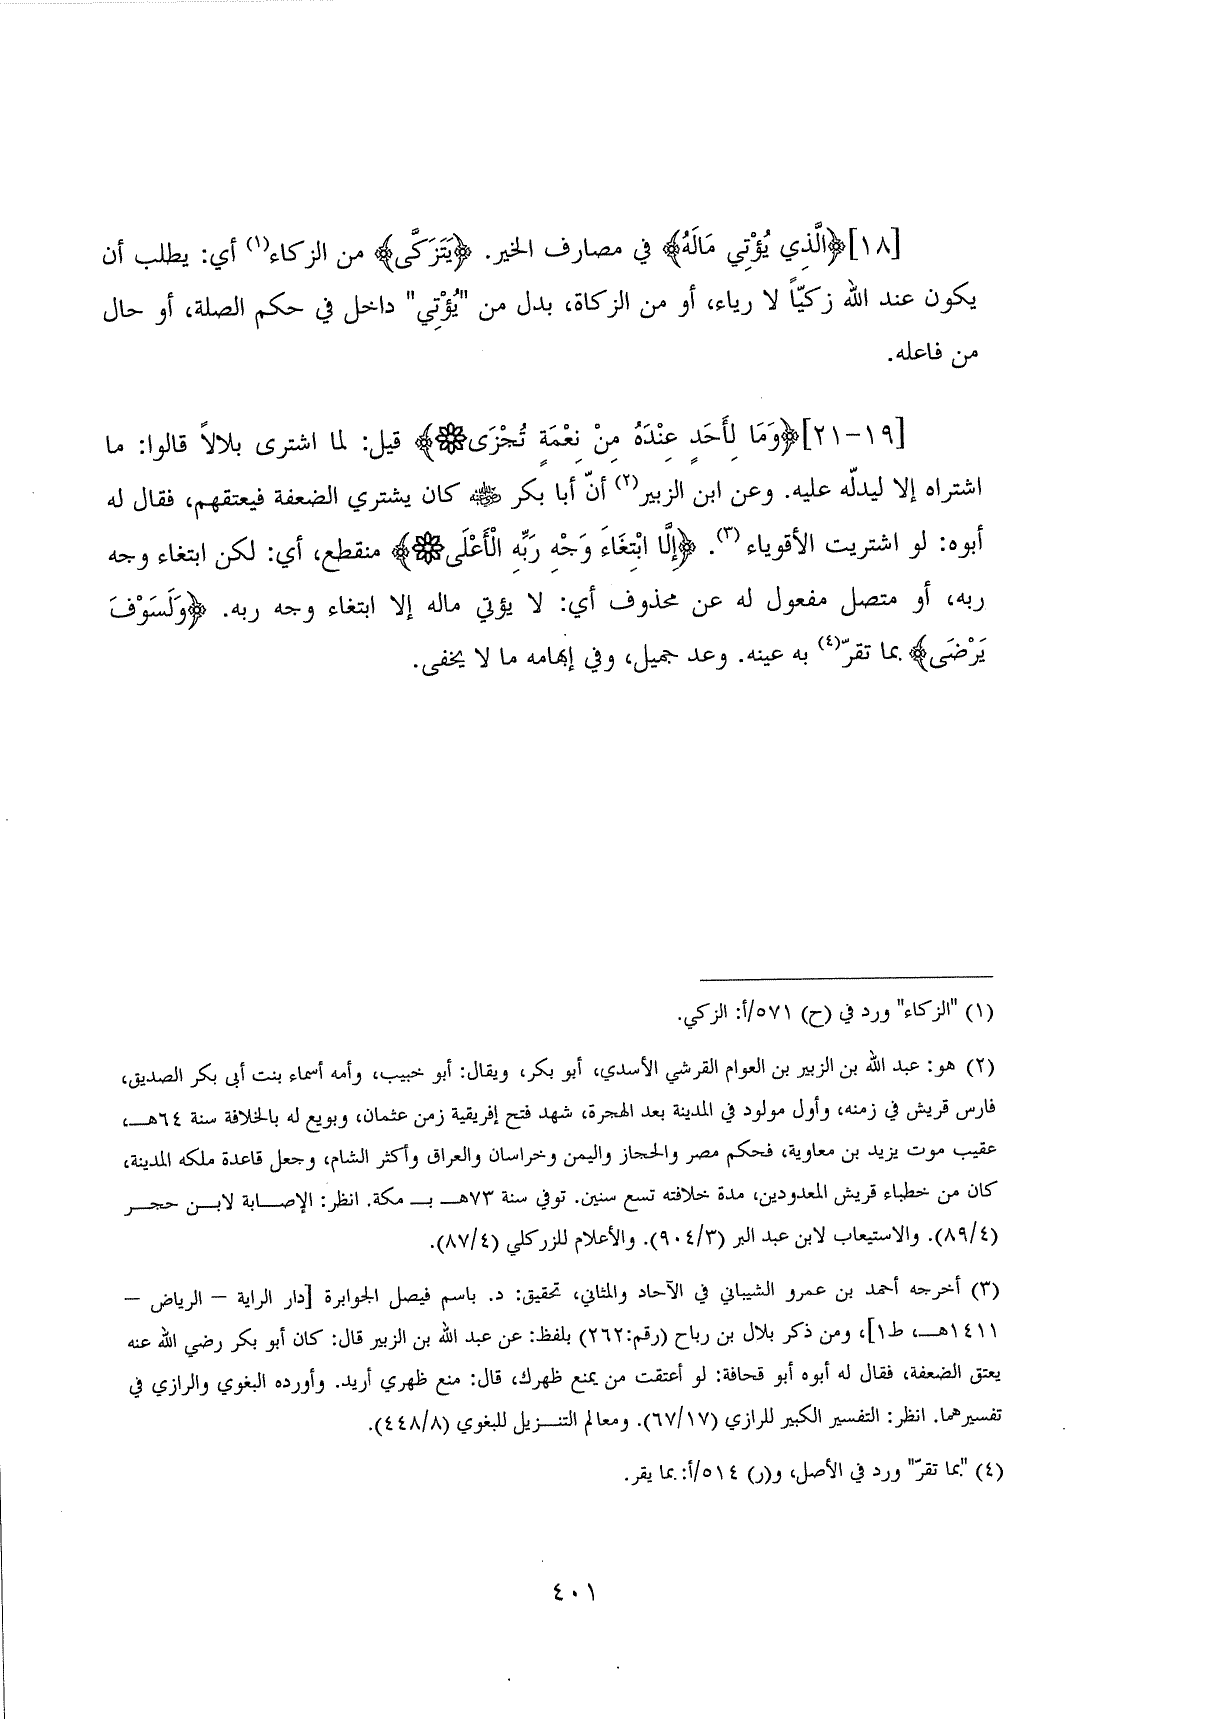 [١٨]﴿الَّذِي يُؤْتِي مَالَهُ﴾ في مصارف الخير. ﴿يَتَزَكَّى﴾ من الزكاء(١) أي: يطلب أن
يكون عند الله زكيّاً لا رياء، أو من الزكاة، بدل من "يُؤْتِي" داخل في حكم الصلة، أو حال
من فاعله.
[١٩-٢١]﴿وَمَا لِأَحَدٍ عِنْدَهُ مِنْ نِعْمَةٍ تُجْزَى۞﴾ قيل: لما اشترى بلالاً قالوا: ما
اشتراه إلا ليدلّه عليه. وعن ابن الزبير(٢) أنّ أبا بكر ﷺ كان يشتري الضعفة فيعتقهم، فقال له
أبوه: لو اشتريت الأقوياء (٣). ﴿إِلَّا ابْتِغَاءَ وَجْهِ رَبِّهِ الْأَعْلَى۞﴾ منقطع، أي: لكن ابتغاء وجه
ربه، أو متصل مفعول له عن محذوف أي: لا يؤتي ماله إلا ابتغاء وجه ربه. ﴿وَلَسَوْفَ
يَرْضَى﴾ بما تقرّ(٤) به عينه. وعد جميل، وفي إبهامه ما لا يخفى.
(١) "الزكاء" ورد في (ح) ٥٧١/أ: الزكي.
(٢) هو: عبد الله بن الزبير بن العوام القرشي الأسدي، أبو بكر، ويقال: أبو خبيب، وأمه أسماء بنت أبي بكر الصديق،
فارس قريش في زمنه، وأول مولود في المدينة بعد الهجرة، شهد فتح إفريقية زمن عثمان، وبويع له بالخلافة سنة ٦٤هــ،
عقيب موت يزيد بن معاوية، فحكم مصر والحجاز واليمن وخراسان والعراق وأكثر الشام، وجعل قاعدة ملكه المدينة،
كان من خطباء قريش المعدودين، مدة خلافته تسع سنين. توفي سنة ٧٣هــ بــ مكة. انظر: الإصـــابة لابــن حجــر
(٨٩/٤). والاستيعاب لابن عبد البر (٩٠٤/٣). والأعلام للزركلي (٨٧/٤).
(٣) أخرجه أحمد بن عمرو الشيباني في الآحاد والمثاني، تحقيق: د. باسم فيصل الجوابرة [دار الراية – الرياض –
١٤١١هــ، ط١]، ومن ذكر بلال بن رباح (رقم:٢٦٢) بلفظ: عن عبد الله بن الزبير قال: كان أبو بكر رضي الله عنه
يعتق الضعفة، فقال له أبوه أبو قحافة: لو أعتقت من يمنع ظهرك، قال: منع ظهري أريد. وأورده البغوي والرازي في
تفسيرهما. انظر: التفسير الكبير للرازي (٦٧/١٧). ومعالم التنــزيل للبغوي (٤٤٨/٨).
(٤) "بما تقرّ" ورد في الأصل، و(ر) ٥١٤/أ: بما يقر.
٤٠١